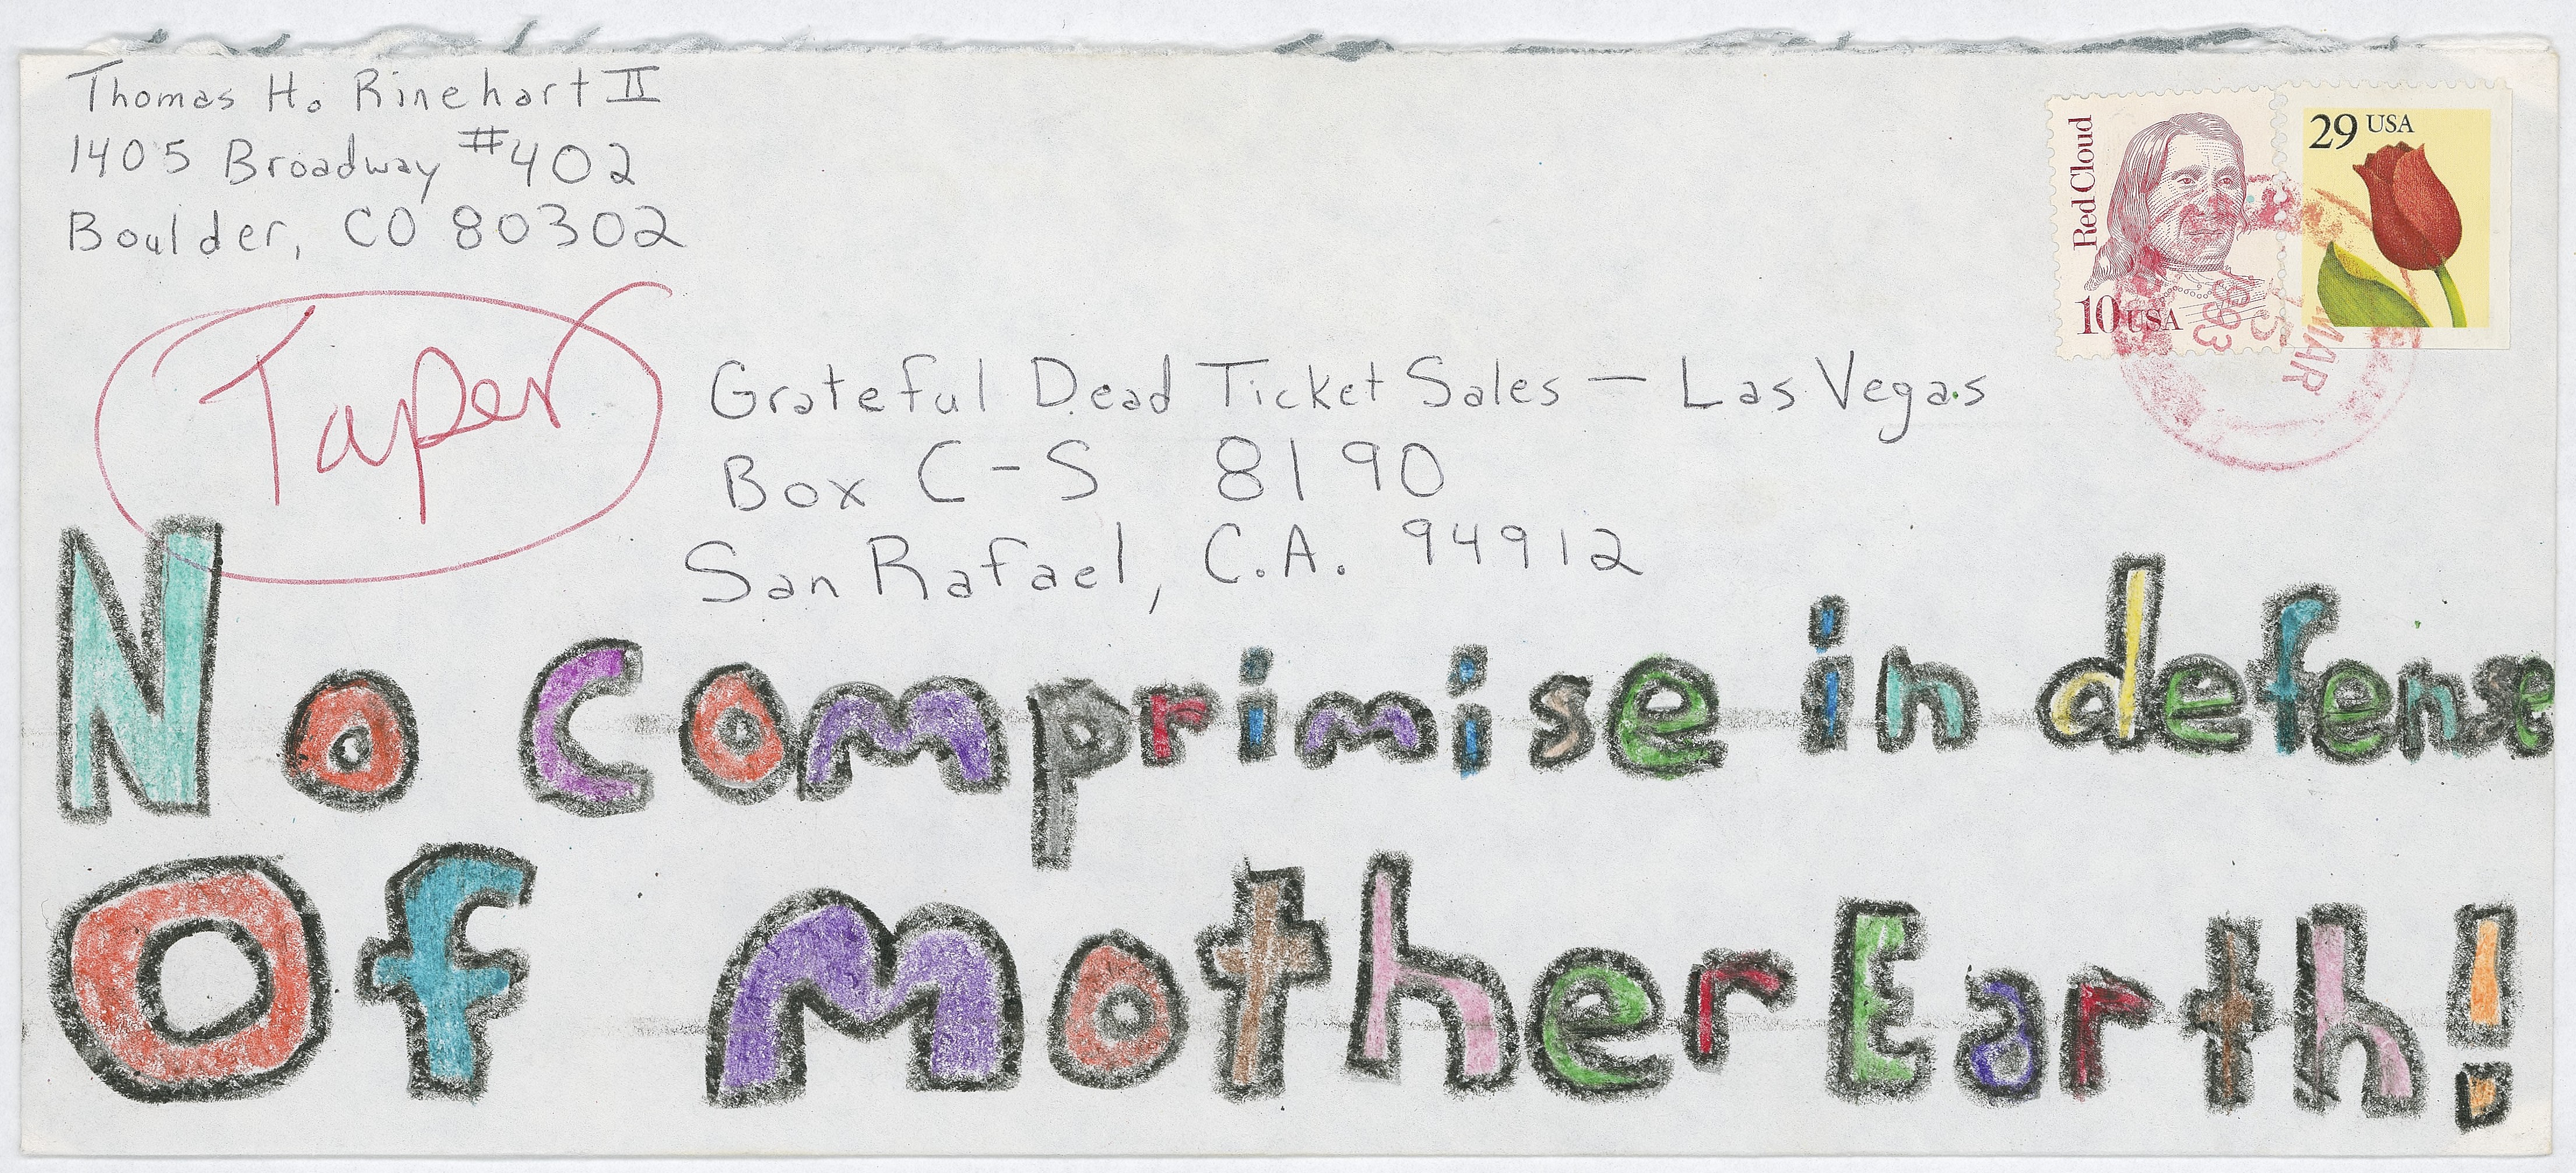 Thomas H. Rinehart II
1405 Broadway #402
Boulder, CO 80302
Red Cloud
10 USA
29 USA
MAR
15
1993
Taper
Grateful Dead Ticket Sales — Las Vegas
Box C-S 8190
San Rafael, C.A. 94912
No Comprimise in defense
Of Mother Earth!